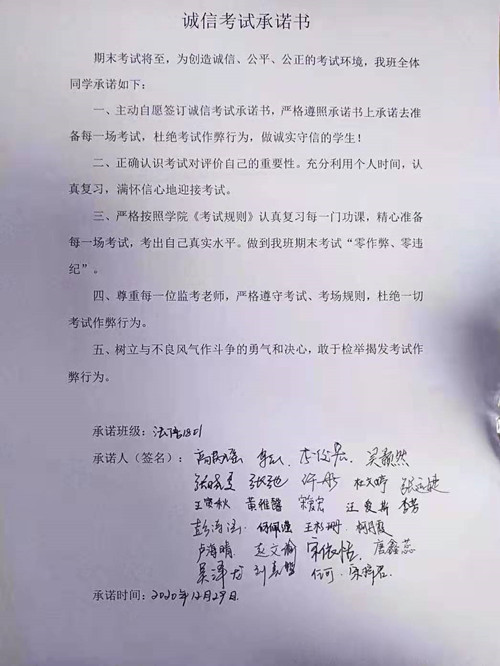 诚信考试承诺书
期末考试将至，为创造诚信、公平、公正的考试环境，我班全体
同学承诺如下：
一、主动自愿签订诚信考试承诺书，严格遵照承诺书上承诺去准
备每一场考试，杜绝考试作弊行为，做诚实守信的学生！
二、正确认识考试对评价自己的重要性。充分利用个人时间，认
真复习，满怀信心地迎接考试。
三、严格按照学院《考试规则》认真复习每一门功课，精心准备
每一场考试，考出自己真实水平。做到我班期末考试“零作弊、零违
纪”。
四、尊重每一位监考老师，严格遵守考试、考场规则，杜绝一切
考试作弊行为。
五、树立与不良风气作斗争的勇气和决心，敢于检举揭发考试作
弊行为。
承诺班级：法语1801
承诺人（签名）：吴颖然
张弛
王寅秋 黄雅馨 汪爱斯 李芳
彭海涵 何佩强 王杉珊
卢海晴 赵文瑜 宋依恬 唐鑫蕊
吴泽龙 任可
承诺时间：2020年12月29日